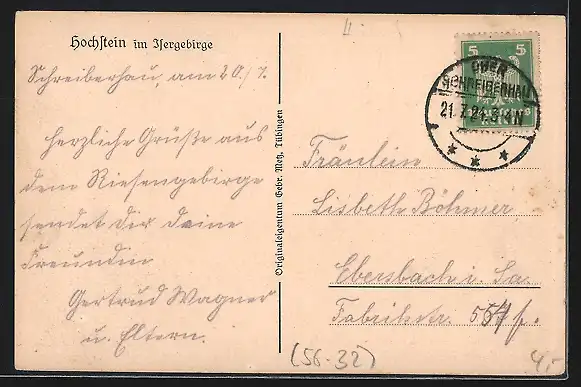 Hochstein im Isergebirge
Schreiberhau, am 20./7.
Herzliche Grüße aus
dem Riesengebirge
sendet Dir Deine
Freundin
Gertrud Wagner
u. Eltern.
Originaleigentum Gebr. Metz, Tübingen
5 5
OBER
SCHREIBERHAU
21.7.24
Fräulein
Lisbeth Böhmer
Ebersbach i. Sa.
Fabrikstr.
(56-32)